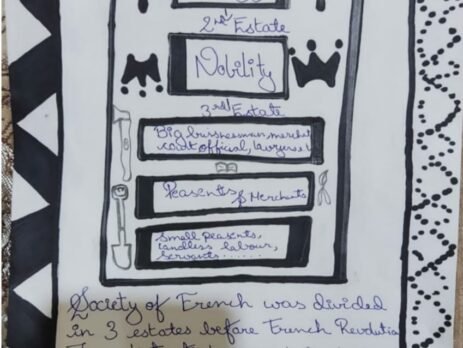 2nd Estate
Nobility
3rd Estate
Big businessman, merchant
court official, lawyers
Peasents & Merchants
Small peasents,
landless labour,
servants......
Society of French was divided
in 3 estates before French Revolution